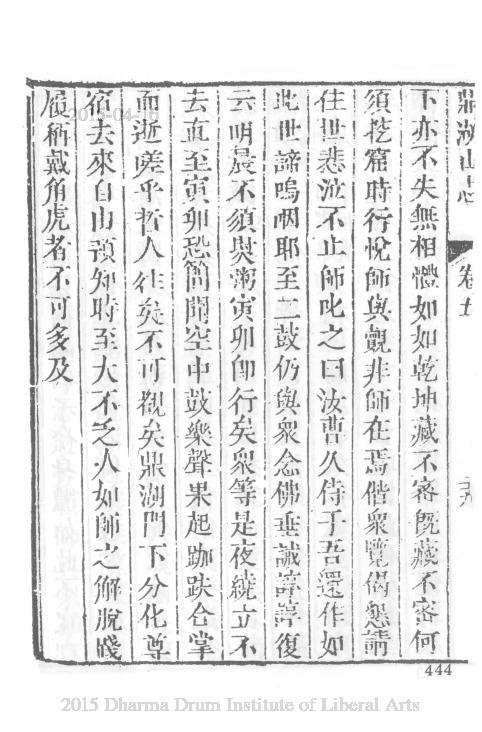 鼎湖山志 卷五
下亦不失無相體如如乾坤藏不密旣藏不密何
須挖窟時行悅師與覿非師在焉偕衆覽偈懇請
住世悲泣不止師叱之曰汝曹久侍于吾還作如
此世諦嗚咽耶至二鼓仍與衆念佛垂誡諄諄復
云明晨不須與粥寅卯卽行矣衆等是夜繞立不
去直至寅卯恐簡聞空中鼓樂聲果起跏趺合掌
而逝嗟乎哲人往矣不可覩矣鼎湖門下分化尊
宿去來自由預知時至大不乏人如師之解脫踐
履稱戴角虎者不可多及
444
2015 Dharma Drum Institute of Liberal Arts